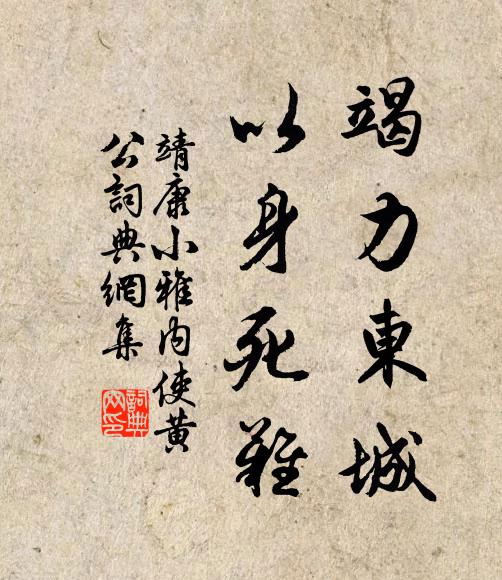 竭力東城
以身死難
靖康小雅內使黃
公詞典網集
詞典
网印